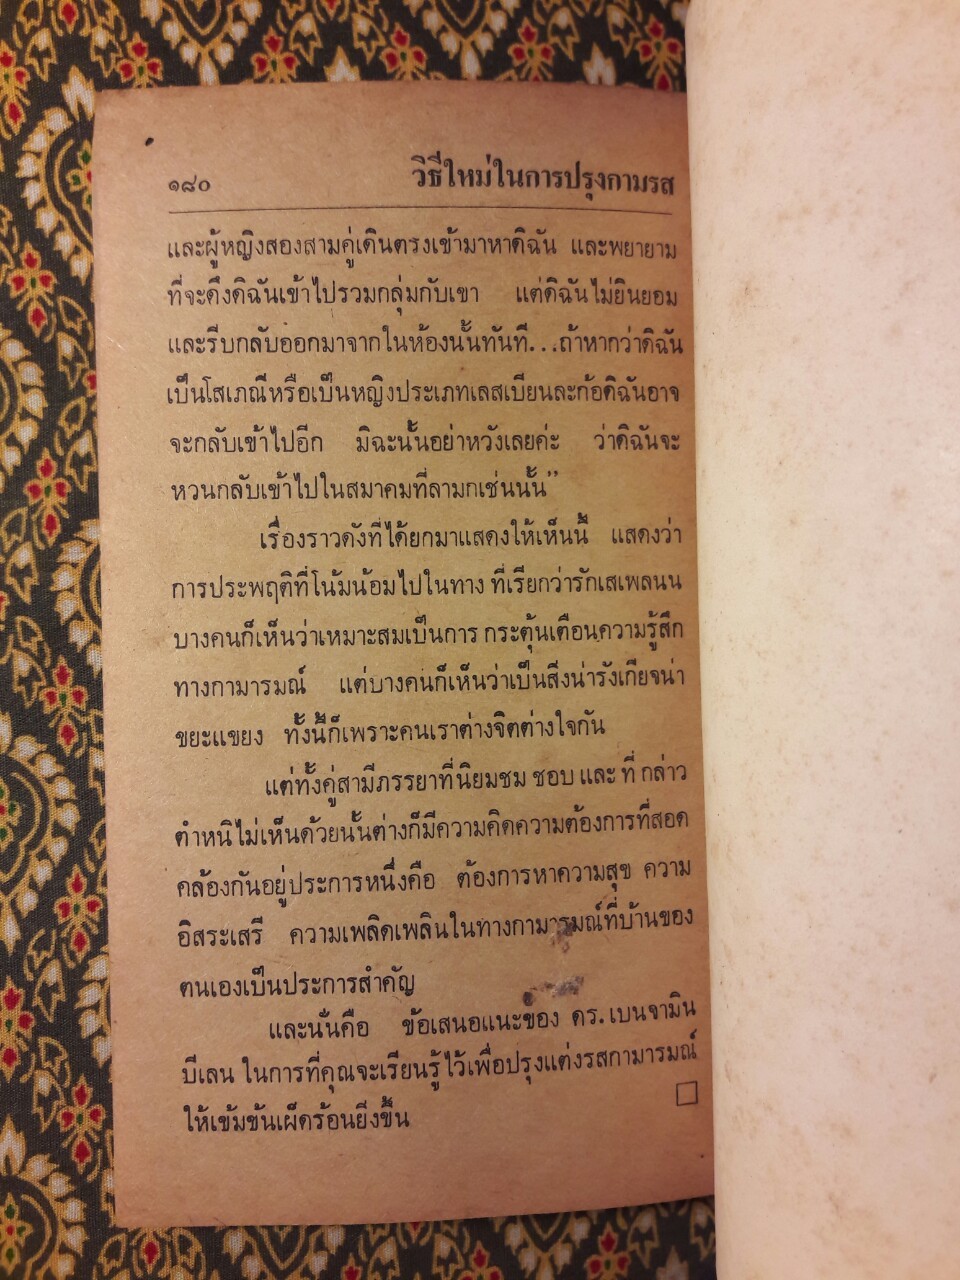 ๑๘๐ วิธีใหม่ในการปรุงกามรส
และผู้หญิงสองสามคู่เดินตรงเข้ามาหาดิฉัน และพยายาม
ที่จะดึงดิฉันเข้าไปรวมกลุ่มกับเขา แต่ดิฉันไม่ยินยอม
และรีบกลับออกมาจากในห้องนั้นทันที...ถ้าหากว่าดิฉัน
เป็นโสเภณีหรือเป็นหญิงประเภทเลสเบียนละก้อดิฉันอาจ
จะกลับเข้าไปอีก มิฉะนั้นอย่าหวังเลยค่ะ ว่าดิฉันจะ
หวนกลับเข้าไปในสมาคมที่ลามกเช่นนั้น”
เรื่องราวดังที่ได้ยกมาแสดงให้เห็นนี้ แสดงว่า
การประพฤติที่โน้มน้อมไปในทาง ที่เรียกว่ารักเสเพลนน
บางคนก็เห็นว่าเหมาะสมเป็นการ กระตุ้นเตือนความรู้สึก
ทางกามารมณ์ แต่บางคนก็เห็นว่าเป็นสิ่งน่ารังเกียจน่า
ขยะแขยง ทั้งนี้ก็เพราะคนเราต่างจิตต่างใจกัน
แต่ทั้งคู่สามีภรรยาที่นิยมชม ชอบ และ ที่ กล่าว
ตำหนิไม่เห็นด้วยนั้นต่างก็มีความคิดความต้องการที่สอด
คล้องกันอยู่ประการหนึ่งคือ ต้องการหาความสุข ความ
อิสระเสรี ความเพลิดเพลินในทางกามารมณ์ที่บ้านของ
ตนเองเป็นประการสำคัญ
และนั่นคือ ข้อเสนอแนะของ ดร. เบนจามิน
บีเลน ในการที่คุณจะเรียนรู้ไว้เพื่อปรุงแต่งรสกามารมณ์
ให้เข้มข้นเผ็ดร้อนยิ่งขึ้น